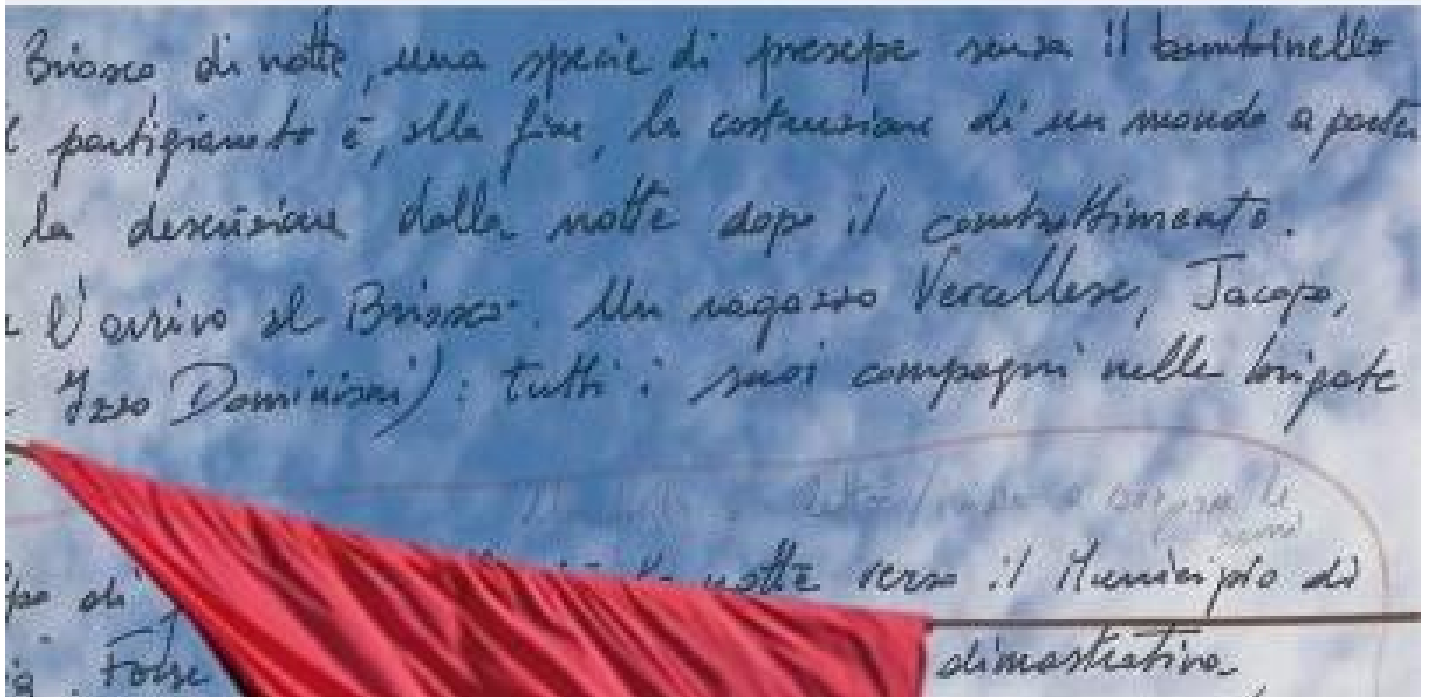 Briasco di notte, una specie di presepe senza il bambinello
l partigianato è, alla fine, la costruzione di un mondo a parte
la descrizione della notte dopo il combattimento.
l'arrivo al Briasco. Un ragazzo Vercellese, Jacopo,
Dominioni): tutti i suoi compagni nelle brigate
notte verso il Municipio di
di
Forse dimostrativa